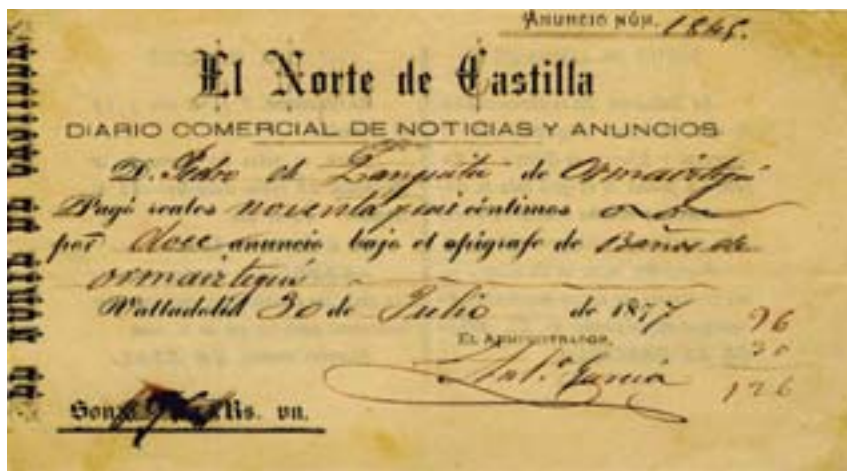 ANUNCIO NÚM. 1845.
El Norte de Castilla
DIARIO COMERCIAL DE NOTICIAS Y ANUNCIOS
D. Pedro de de Ormaiztegui
Pagó reales noventa y seis céntimos
por doce anuncio bajo el epígrafe de Baños de
Ormaiztegui
Valladolid 30 de Julio de 1877
EL ADMINISTRADOR,
Ant.º García
96
30
126
Son Rs. vn.
EL NORTE DE CASTILLA.